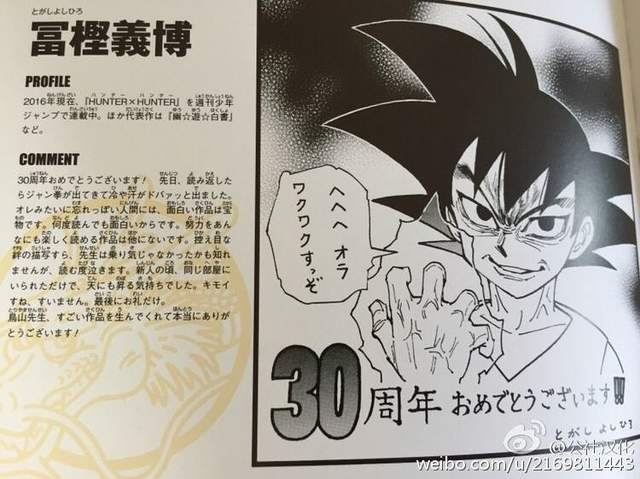 とがしよしひろ
冨樫義博
PROFILE
2016年現在、『HUNTER×HUNTER』を週刊少年
ジャンプで連載中。ほか代表作は『幽☆遊☆白書』
など。
COMMENT
30周年おめでとうございます！ 先日、読み返した
らジャン拳が出てきて冷や汗がドバァッと出ました。
オレみたいに忘れっぽい人間には、面白い作品は宝
物です。何度読んでも面白いからです。努力をあん
なにも楽しく読める作品は他にないです。控え目な
絆の描写すら、先生は乗り気じゃなかったかも知れ
ませんが、読む度泣きます。新人の頃、同じ部屋に
いられただけで、天にも昇る気持ちでした。キモイ
すね、すいません。最後にお礼だけ。
鳥山先生、すごい作品を生んでくれて本当にありが
とうございます！
へへへ オラ
ワクワクすっぞ
30周年 おめでとうございます!!
とがしよしひろ
weibo.com/u/2169811443